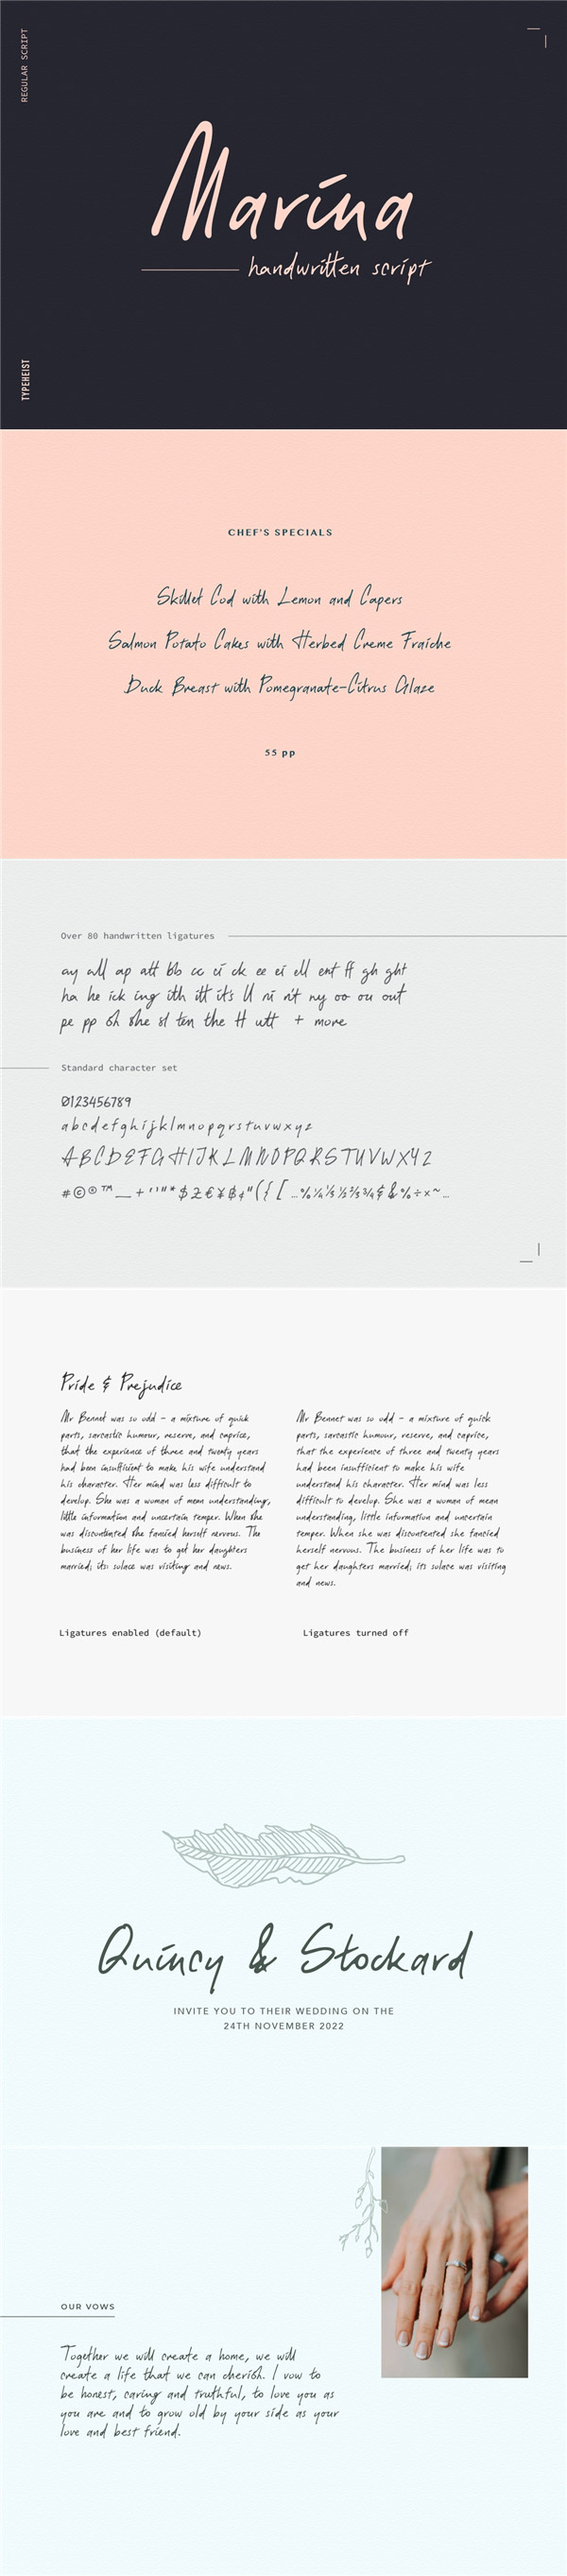 REGULAR SCRIPT
Marina
handwritten script
TYPEHEIST
CHEF'S SPECIALS
Skillet Cod with Lemon and Capers
Salmon Potato Cakes with Herbed Creme Fraiche
Duck Breast with Pomegranate-Citrus Glaze
55 pp
Over 80 handwritten ligatures
ay all ap att bb cc ci ck ee ei ell ent ff gh ght
ha he ick ing ith itt it's ll ni n't ny oo ou out
pe pp sh she sl ten the tt utt + more
Standard character set
0123456789
abcdefghijklmnopqrstuvwxyz
ABCDEFGHIJKLMNOPQRSTUVWXYZ
#©®™_+''"*$£€¥฿¢"({[...%¼⅓½⅔¾&%÷×~...
Pride & Prejudice
Mr Bennet was so odd - a mixture of quick
parts, sarcastic humour, reserve, and caprice,
that the experience of three and twenty years
had been insufficient to make his wife understand
his character. Her mind was less difficult to
develop. She was a woman of mean understanding,
little information and uncertain temper. When she
was discontented she fancied herself nervous. The
business of her life was to get her daughters
married; its solace was visiting and news.
Mr Bennet was so odd - a mixture of quick
parts, sarcastic humour, reserve, and caprice,
that the experience of three and twenty years
had been insufficient to make his wife
understand his character. Her mind was less
difficult to develop. She was a woman of mean
understanding, little information and uncertain
temper. When she was discontented she fancied
herself nervous. The business of her life was to
get her daughters married; its solace was visiting
and news.
Ligatures enabled (default)
Ligatures turned off
Quincy & Stockard
INVITE YOU TO THEIR WEDDING ON THE
24TH NOVEMBER 2022
OUR VOWS
Together we will create a home, we will
create a life that we can cherish. I vow to
be honest, caring and truthful, to love you as
you are and to grow old by your side as your
love and best friend.